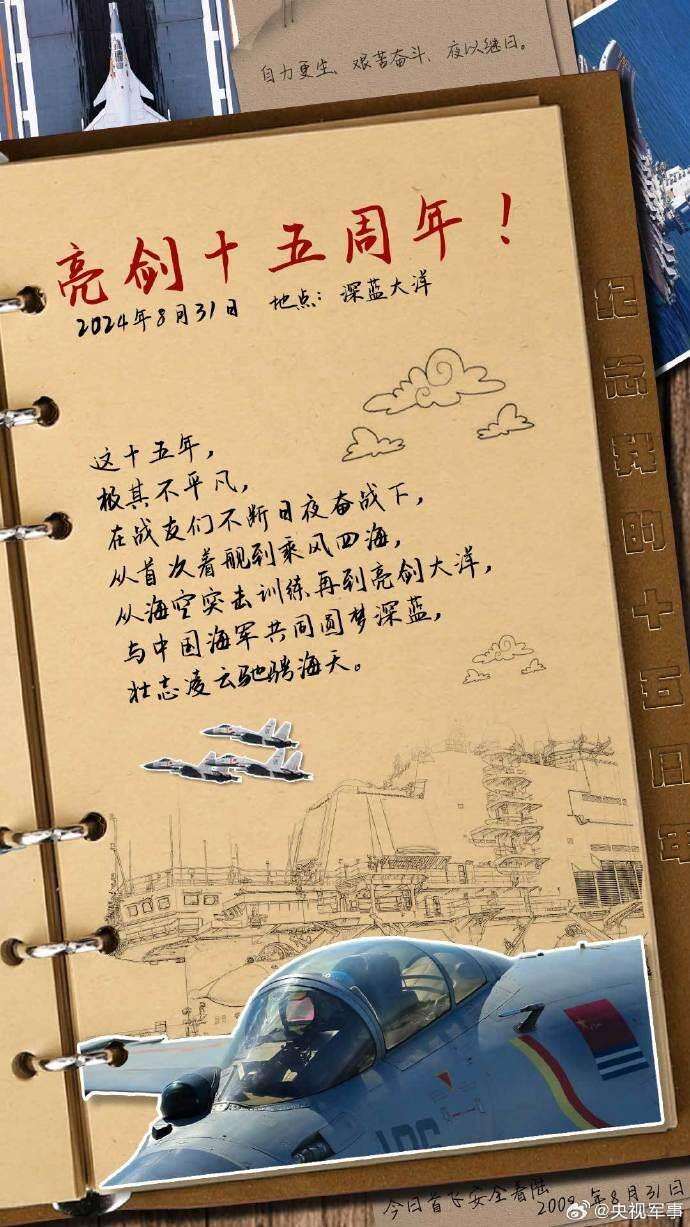 自力更生、艰苦奋斗、夜以继日。
亮剑十五周年！
2024年8月31日 地点：深蓝大洋
纪念我的十五周年
这十五年，
极其不平凡，
在战友们不断日夜奋战下，
从首次着舰到乘风四海，
从海空突击训练再到亮剑大洋，
与中国海军共同圆梦深蓝，
壮志凌云驰骋海天。
今日首飞安全着陆
2009年8月31日
@央视军事